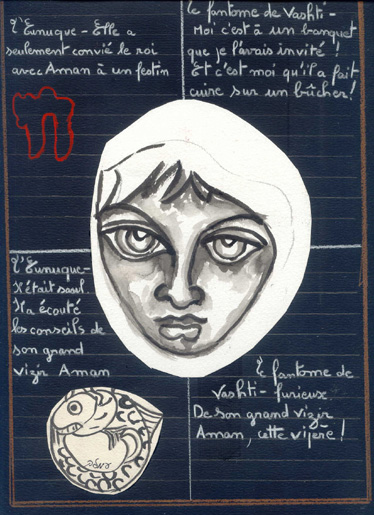 L'Eunuque - Elle a
seulement convié le roi
avec Aman à un festin
le fantome de Vashti -
Moi c'est à un banquet
que je l'avais invité !
Et c'est moi qu'il a fait
cuire sur un bûcher !
L'Eunuque -
Il était saoul.
Il a écouté
les conseils de
son grand
vizir Aman
le fantome de
Vashti - furieux.
De son grand vizir
Aman, cette vipère !